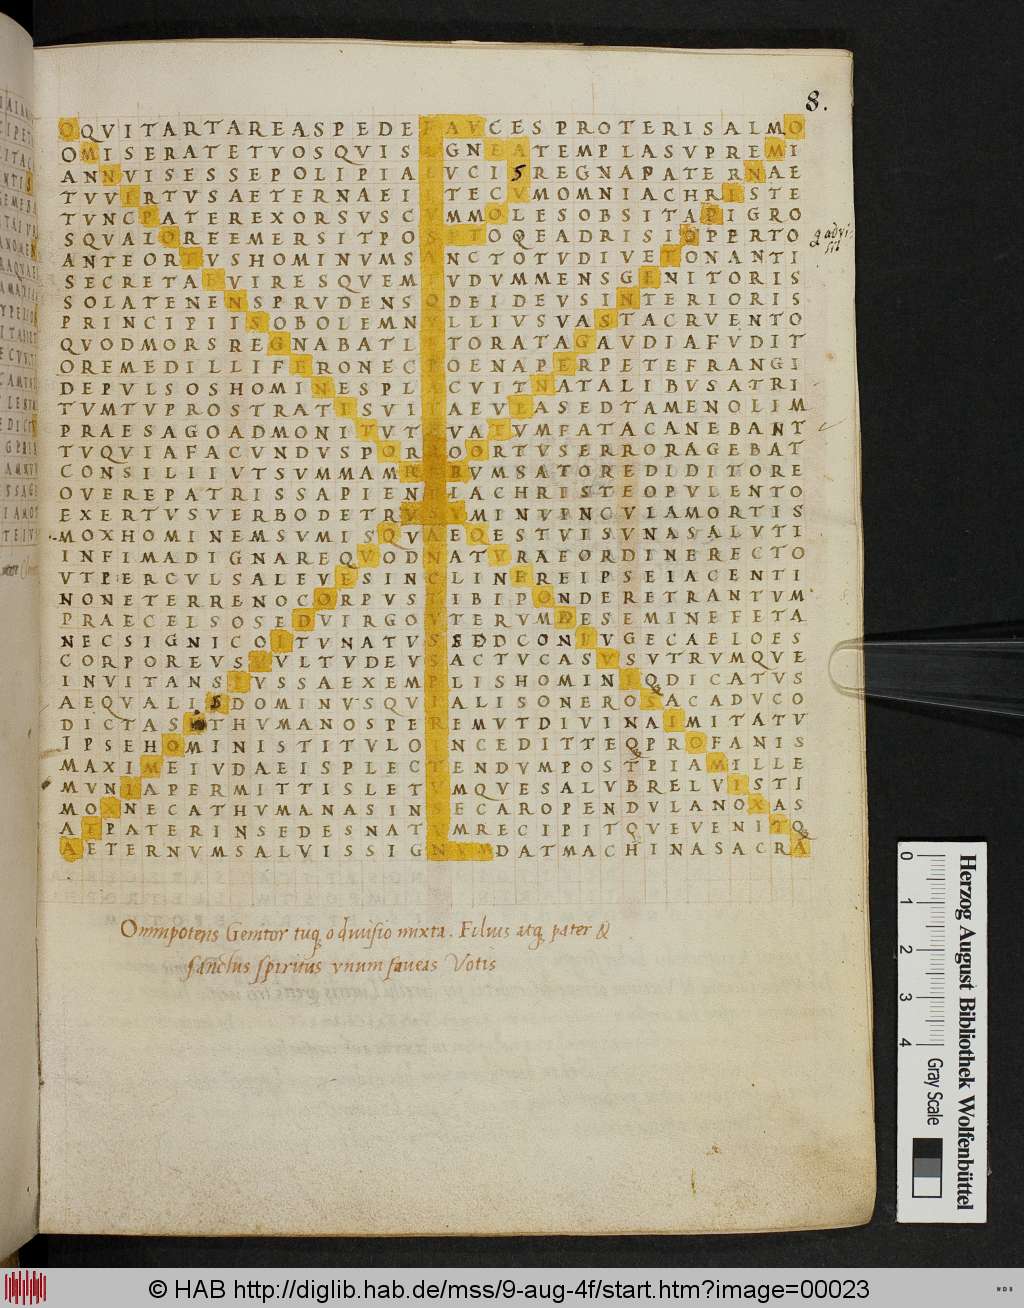 8.
OQVITARTAREASPEDEFAVCESPROTERISALMO
OMISERATETVOSQVISLGNEATEMPLASVPREMI
ANNVISESSEPOLIPIALVCISREGNAPATERNAE
TVVIRTVSAETERNAEIETECVMOMNIACHRISTE
TVNCPATEREXORSVSCVMMOLESOBSITAPIGRO
SQVALOREEMERSITPOSETOQEADRISIOPPERTO
ANTEORTVSHOMINVMSANCTOTVDIVETONANTI
SECRETAEVIRESQVEMTVDVMMENSGENITORIS
SOLATENENSPRVDENSQDEIDEVSINTERIORIS
PRINCIPIISOBOLEMNVLLIVSVASTACRVENTO
QVODMORSREGNABATLETORATAGAVDIAFVDIT
OREMEDILLIFERONECPOENAPERPETEFRANGI
DEPVLSOSHOMINESPLACVITNATALIBVSATRI
TVMTVPROSTRATISVITAEVEASEDTAMENOLIM
PRAESAGOADMONITVTEVATVMFATACANEBANT
TVQVIAFACVNDVSPORROORTVSERRORAGEBAT
CONSILIIVTSVMMAMREBVMSATOREDIDITORE
OVEREPATRISSAPIENTIACHRISTEOPVLENTO
EXERTVSVERBODETRVSVMINVENCVLAMORTIS
MOXHOMINEMSVMISQVAEQESTVISVNASALVTI
INFIMADIGNAREQVODNATVRAEORDINERECTO
VTPERCVLSALEVESINCLINEREIPSEIACENTI
NONETERRENOCORPVSTIBIPONDERETRANTVM
PRAECELSOSEDVIRGOVTERVMDESEMINEFETA
NECSIGNICOITVNATVSSEDCONIVGECAELOES
CORPOREVSVVLTVDEVSACTVCASVSVTRVMQVE
INVITANSIVSSAEXEMPLISHOMINIQDICATVS
AEQVALISDOMINVSQVIALISONEROSACADVCO
DICTASETHVMANOSPEREMVTDIVINAIMITATV
IPSEHOMINISTITVLOINCEDITTEQPROFANIS
MAXIMEIVDAEISPLECTENDVMPOSTPIAMILLE
MVNIAPERMITTISLETVMQVESALVBRELVISTI
MOXNECATHVMANASINSECAROPENDVLANOXAS
ATPATERINSEDESNATVMRECIPITQVEVENITQ
AETERNVMSALVISSIGNVMDATMACHINASACRA
Omnipotens Genitor tuq o divisio mixta. Filius atq pater &
sanctus spiritus vnum faveas Votis
Herzog August Bibliothek Wolfenbüttel
0 1 2 3 4
Gray Scale
© HAB http://diglib.hab.de/mss/9-aug-4f/start.htm?image=00023